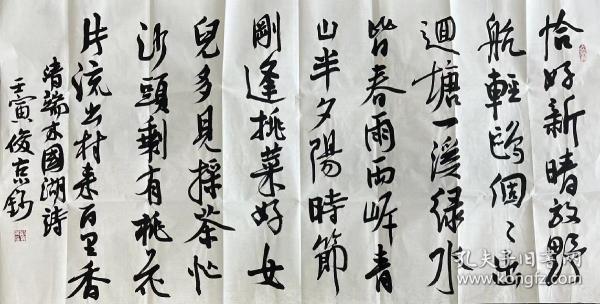 恰好新晴放野
航輕鷗個〻出
迴塘一溪绿水
皆春雨两岸青
山半夕陽時節
剛逢挑菜好女
兒多見採茶忙
沙頭剩有桃花
片流出村来百里香
清端木國湖詩
壬寅俊京
孔夫子旧书网
kongfz.com